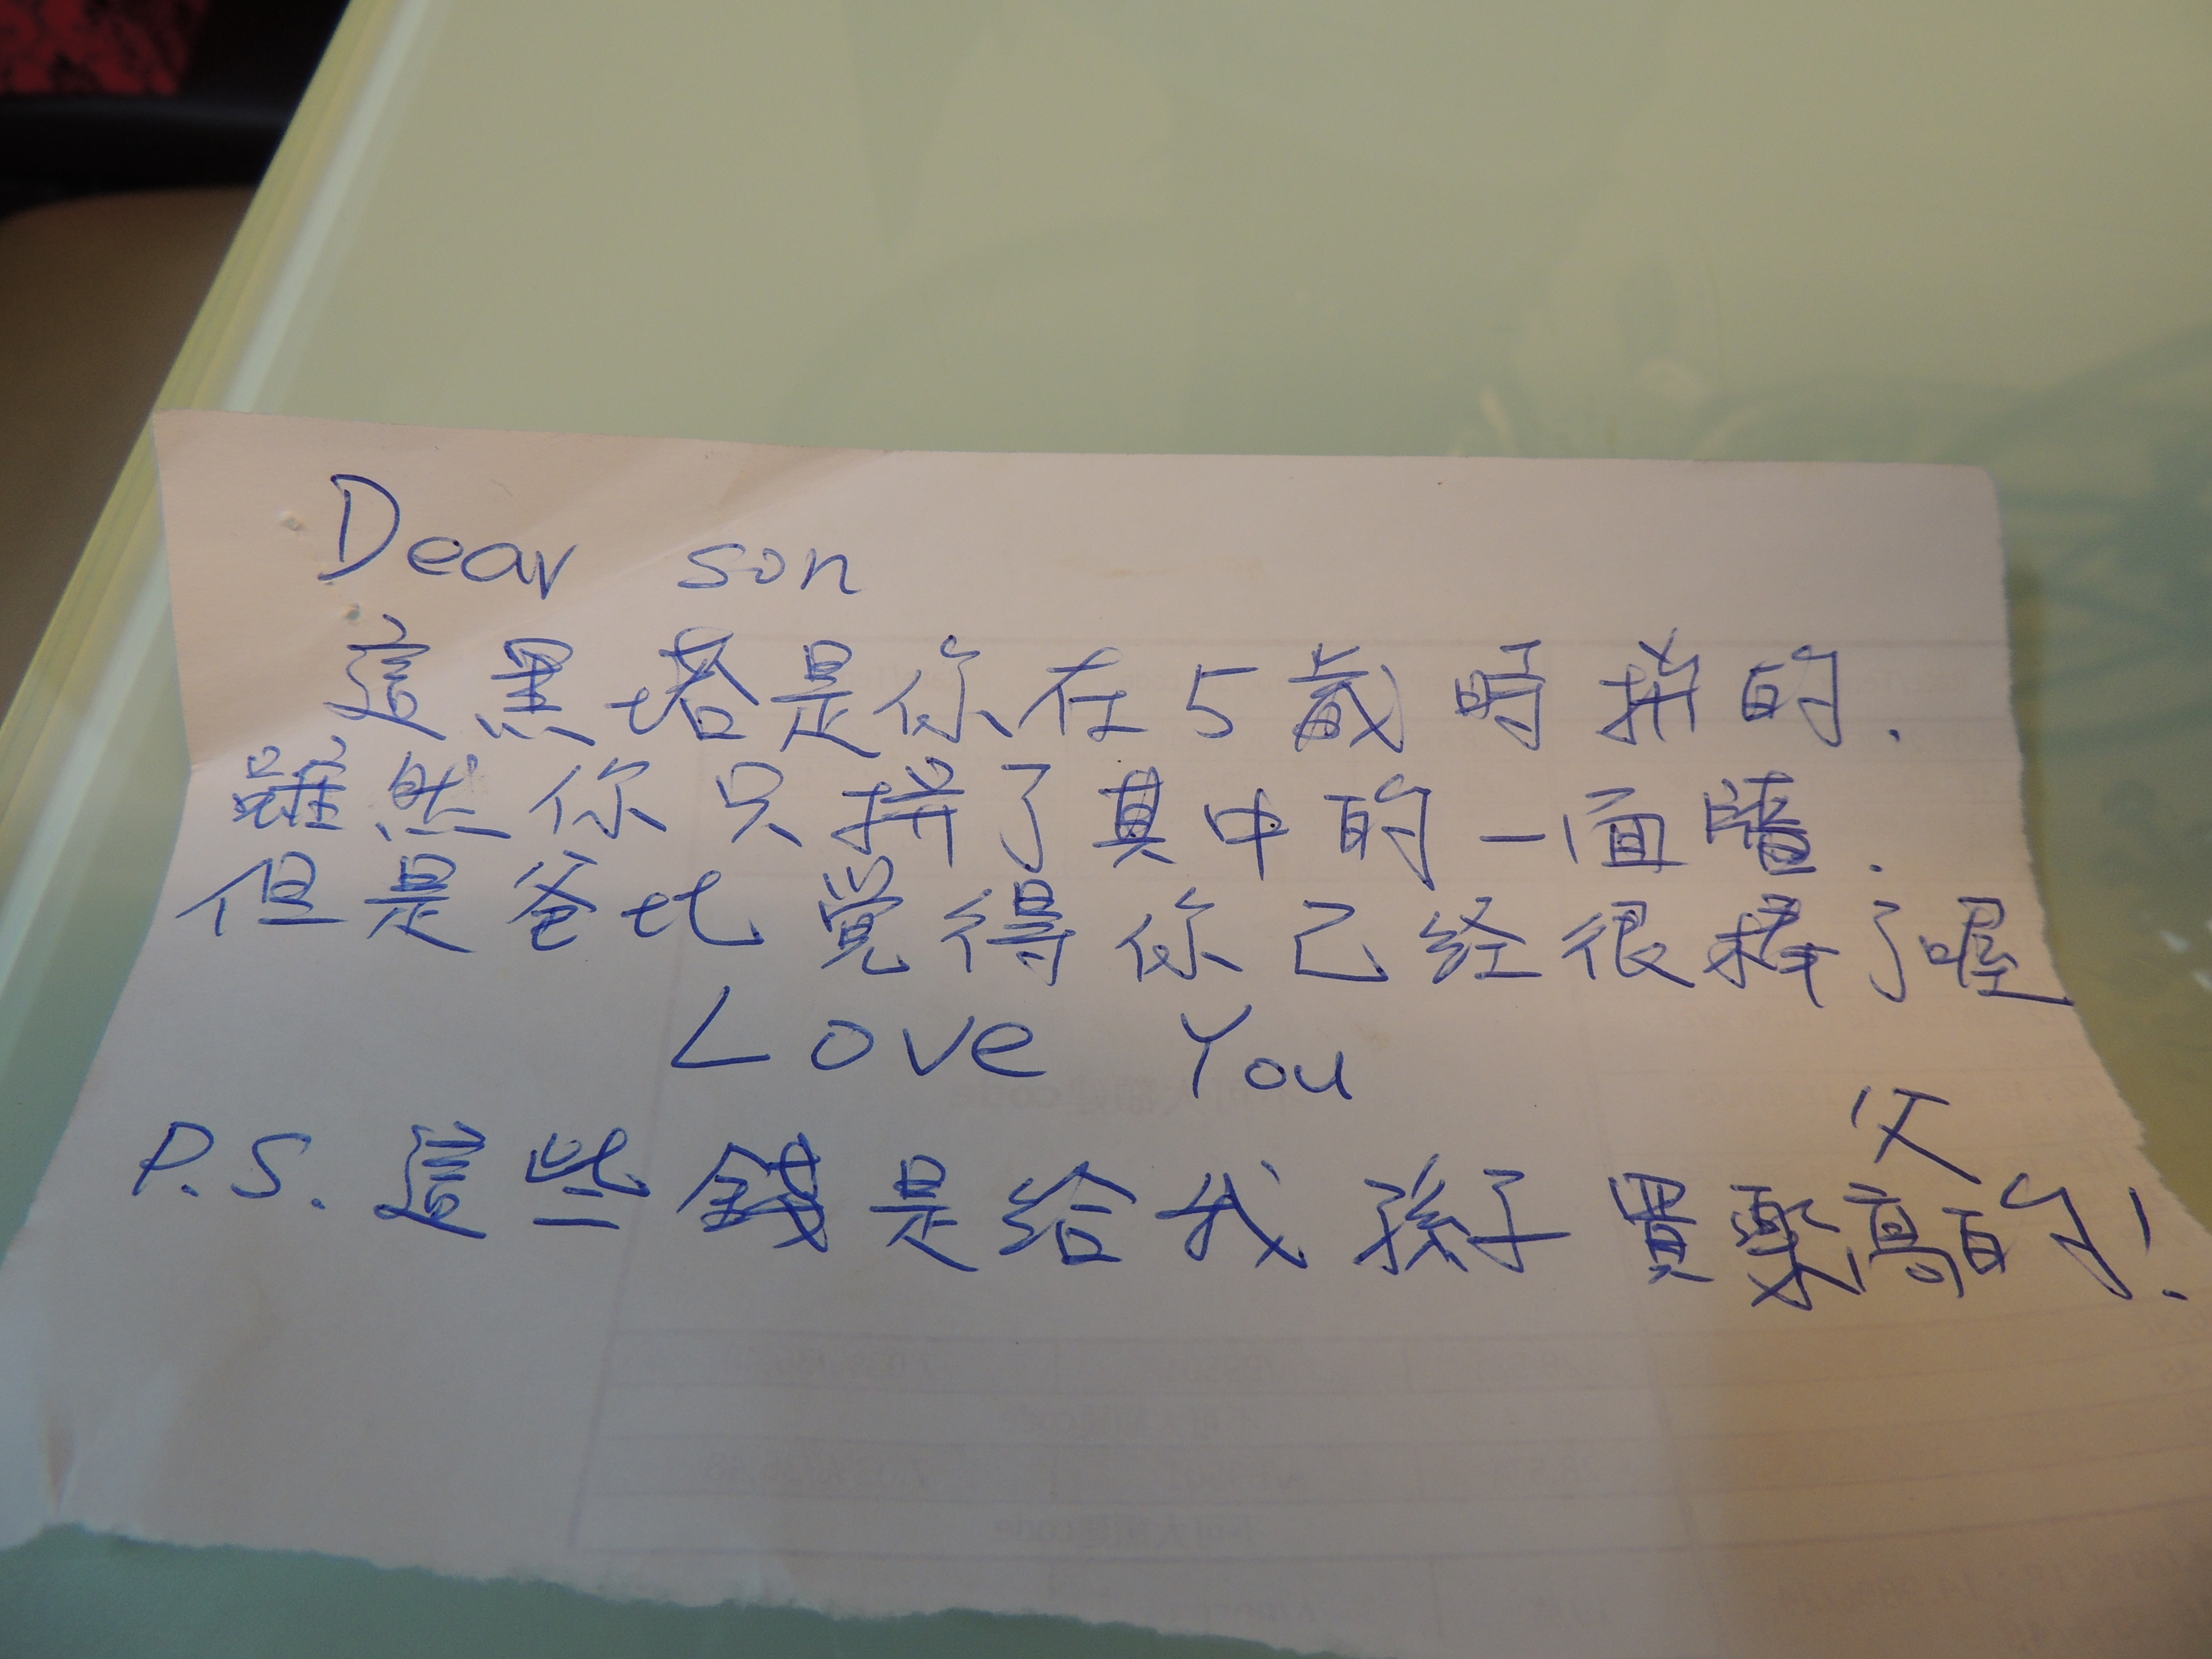 Dear son
這黑塔是你在5歲時拼的.
雖然你只拼了其中的一面牆.
但是爸比覺得你已经很棒了喔
Love You
父
P.S. 這些錢是给我孫子買樂高的!